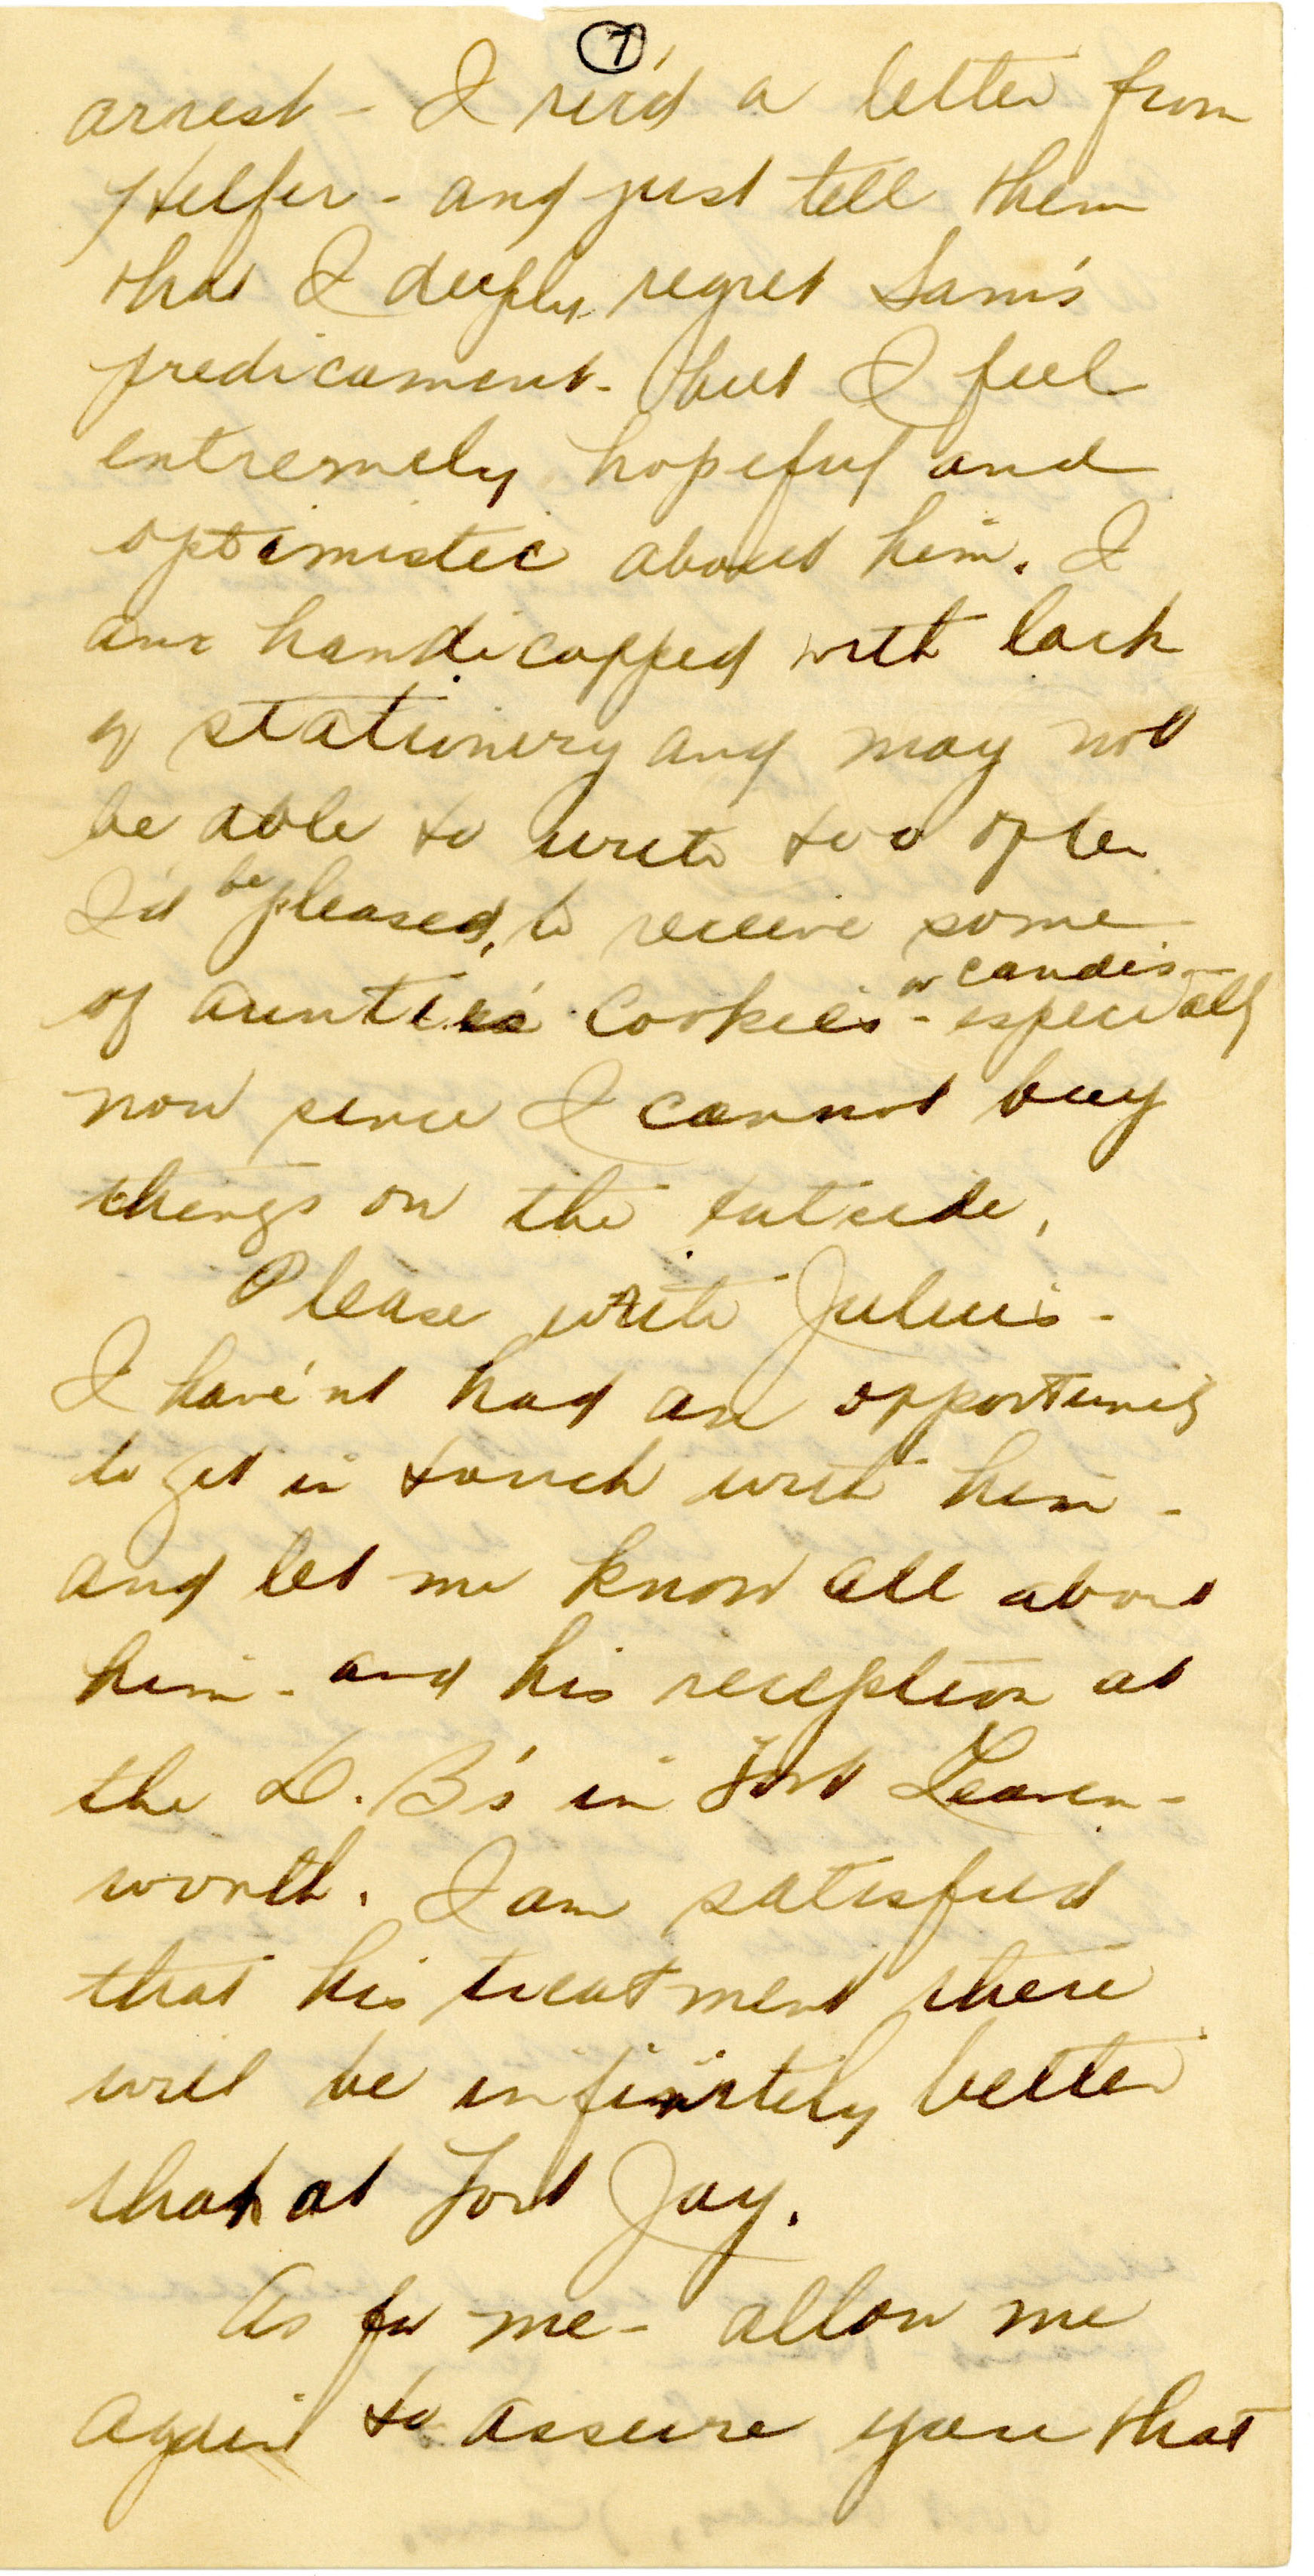 7
arrest - I rec'd a letter from
Helfer - and just tell them
that I deeply regret Sam's
predicament - but I feel
extremely hopeful and
optimistic about him. I
am handicapped with lack
of stationery and may not
be able to write too often
I'd be pleased, to receive some
of auntie's cookies or candies - especially
now since I cannot buy
things on the outside.
Please write Julius -
I have'nt had an opportunity
to get in touch with him -
and let me know all about
him - and his reception at
the D.B's in Fort Leaven-
worth. I am satisfied
that his treatment there
will be infinitely better
than at Fort Jay.
As for me - allow me
again to assure you that